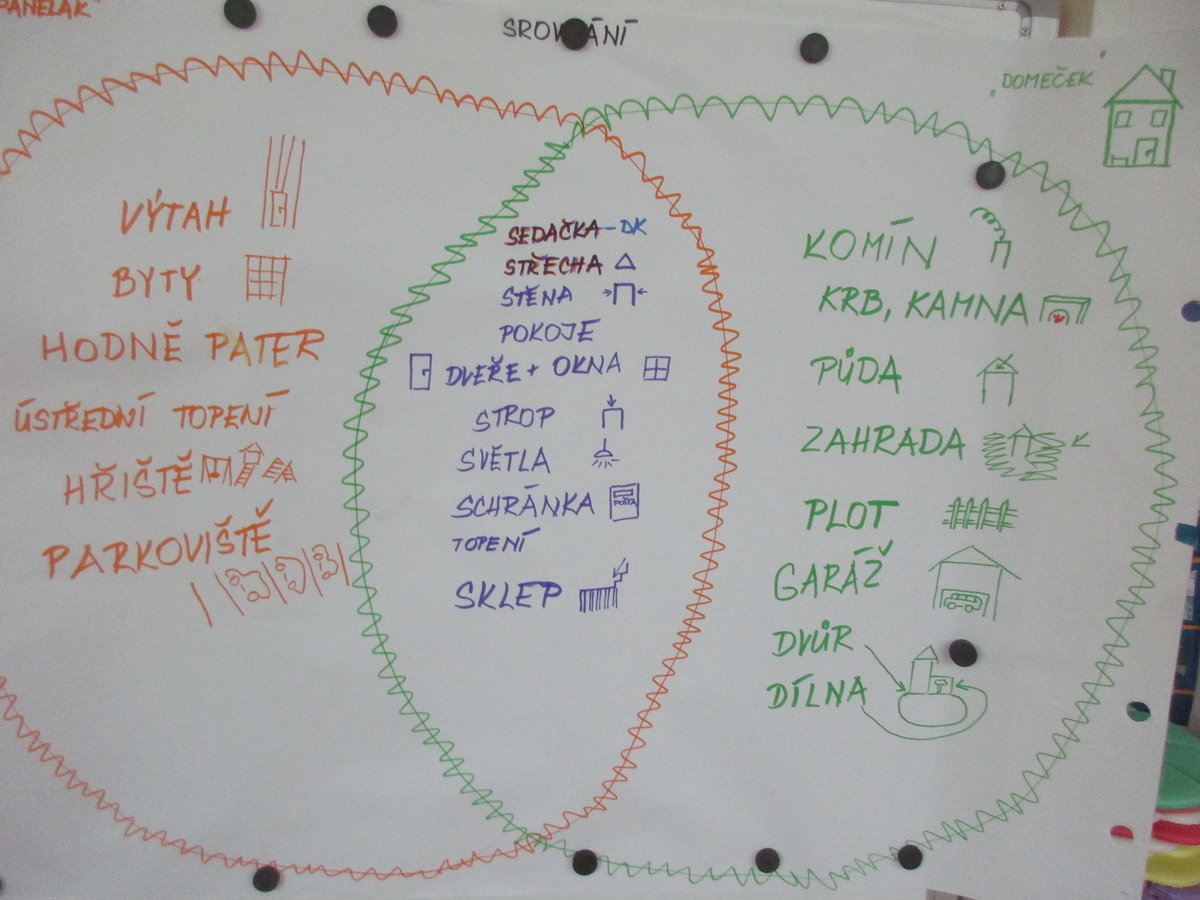 PANELÁK"
SROVNÁNÍ
"DOMEČEK"
VÝTAH
BYTY
HODNĚ PATER
ÚSTŘEDNÍ TOPENÍ
HŘIŠTĚ
PARKOVIŠTĚ
SEDAČKA-DK
STŘECHA
STĚNA
POKOJE
DVEŘE + OKNA
STROP
SVĚTLA
SCHRÁNKA
POŠTA
TOPENÍ
SKLEP
KOMÍN
KRB, KAMNA
PŮDA
ZAHRADA
PLOT
GARÁŽ
DVŮR
DÍLNA